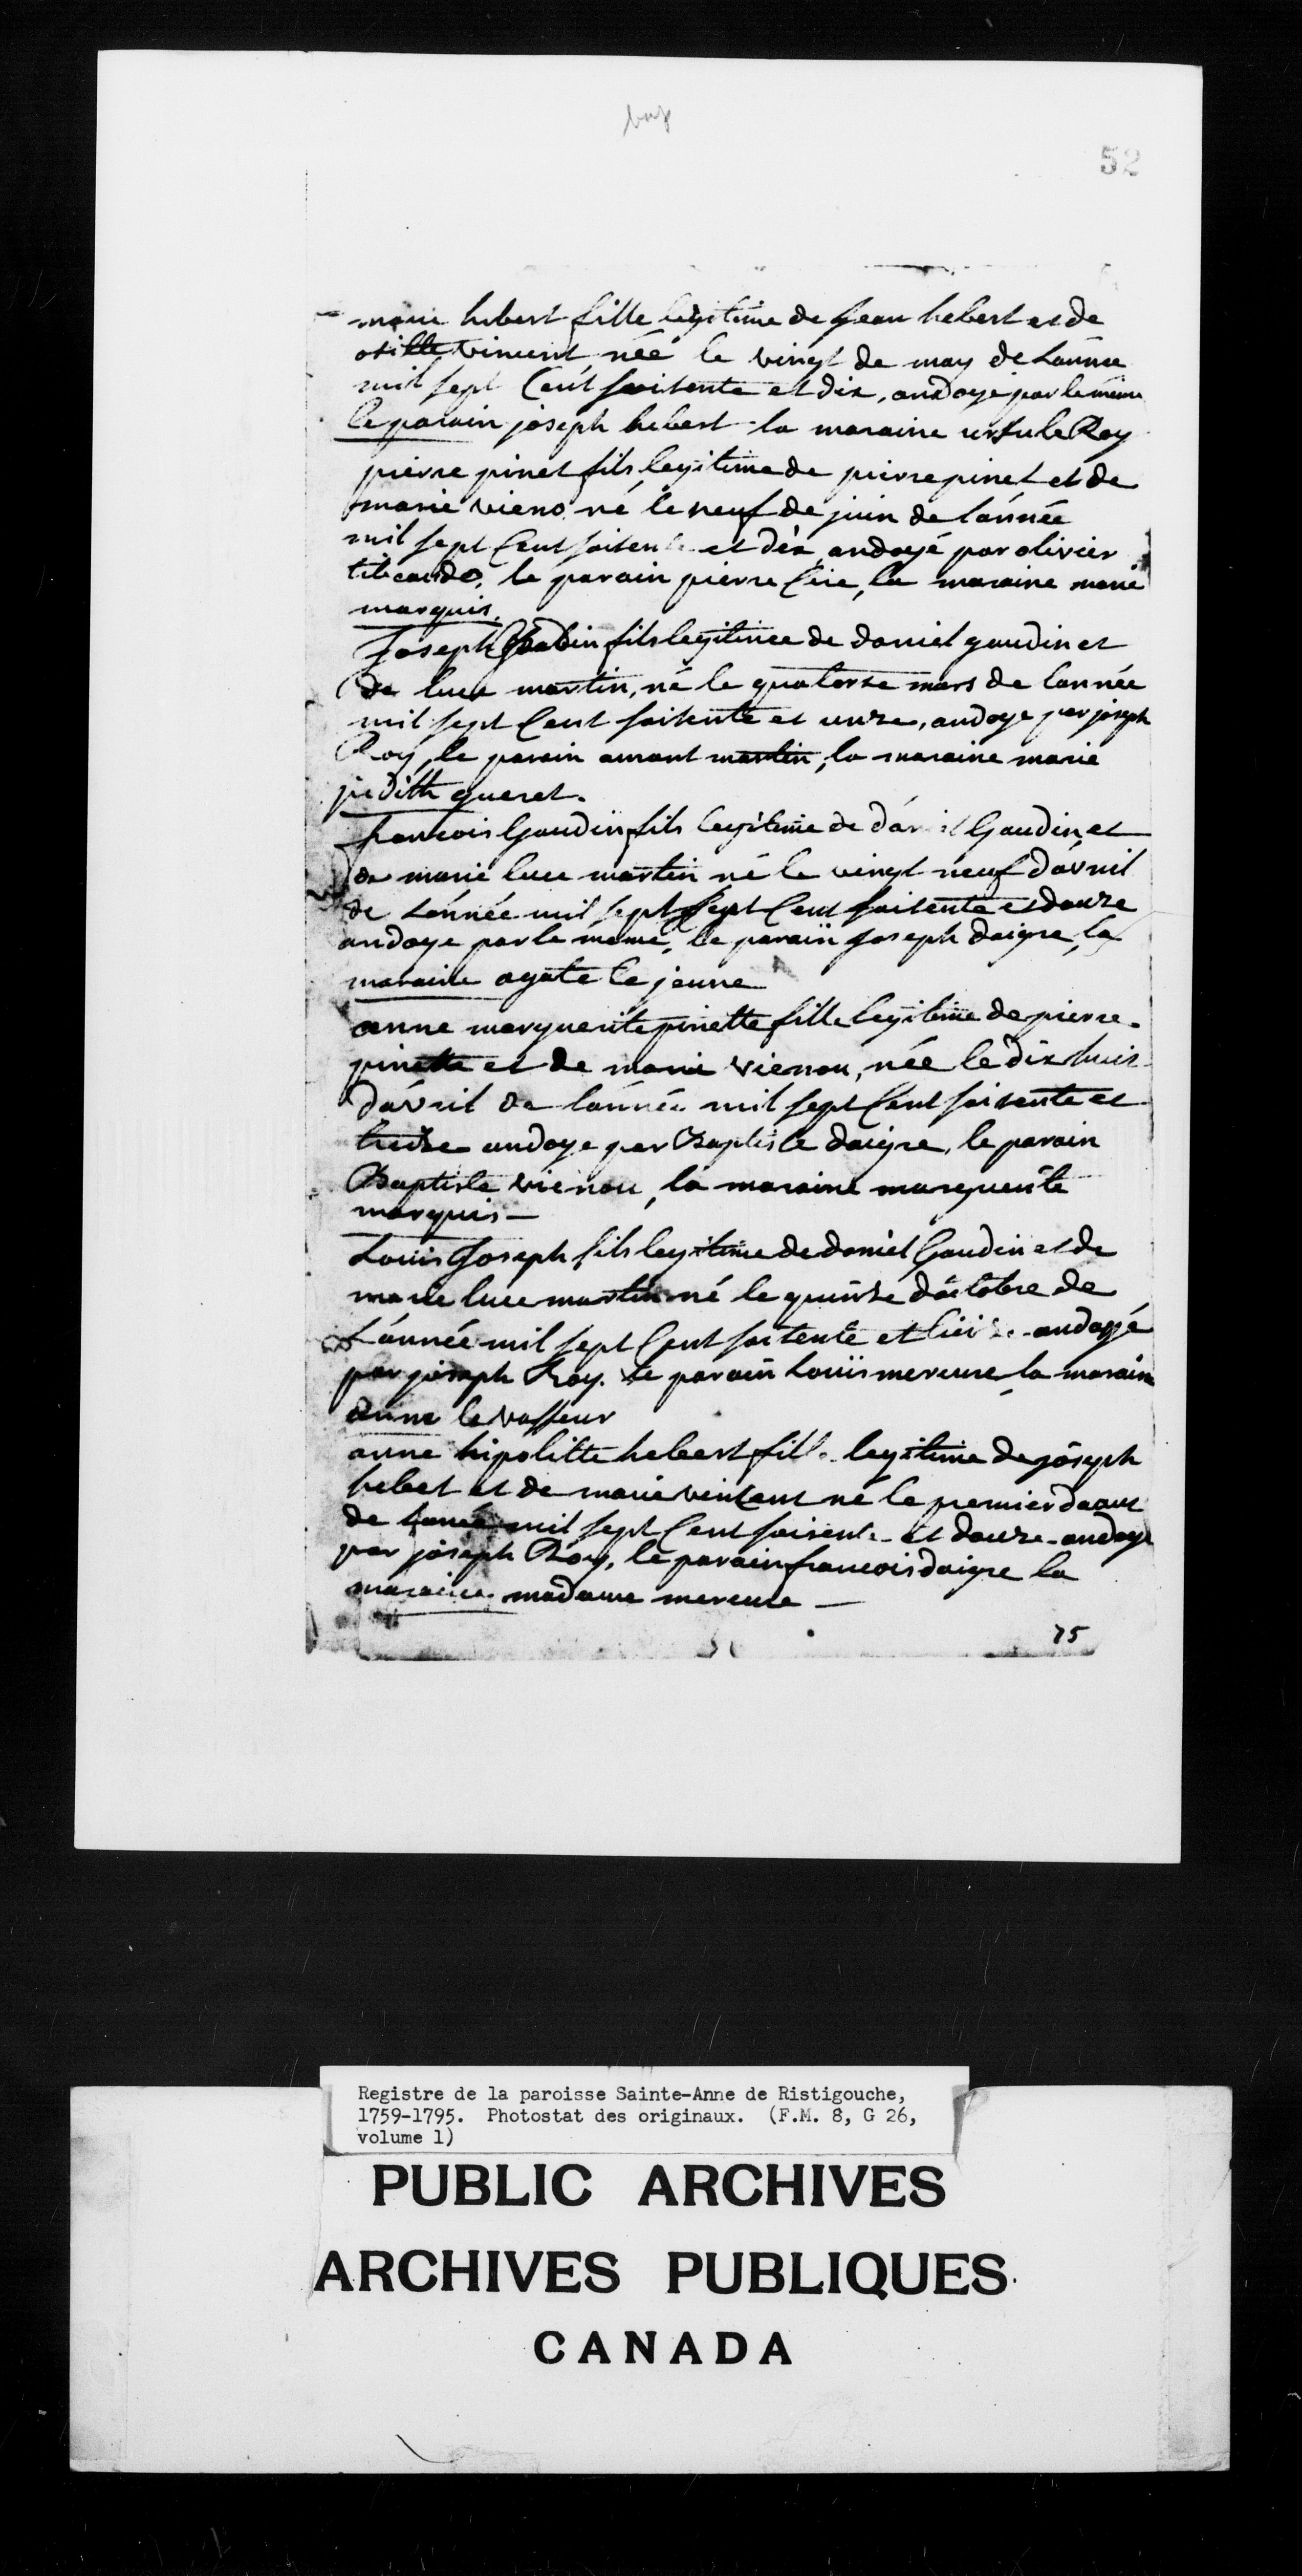 bap
52
marie hebert fille legitime de Jean hebert et de
osille vincent née le vingt de may de Lánnée
mil sept Cent soisente et dix, andoye par le même
le parain joseph hebert la maraine ursule Roy
pierre pinet fils legitime de pierre pinet et de
marie vieno né le neuf de juin de lánnée
mil sept Cent soisente et dix andoyé par olivier
le parain pierre la maraine marie
marquis.
Joseph fils legitime de daniel gaudin et
de luce martin, né le quatorse mars de lannée
mil sept Cent soisente et unze, andoye par joseph
Roy, le parain amant martin, la maraine marie
judith queret.
francois Gaudin fils legitime de daniel Gaudin et
de marie luce martin né le vingt neuf dávril
de Lánnée mil sept sept Cent soisente et douze
andoye par le meme, le parain Joseph daigre, la
maraine agate le jeune
anne marguerite pinette fille legitime de pierre
pinette et de marie vienou, née le dix huit
dávril de lánnée mil sept Cent soisente et
treize andoye par Baptiste daigre, le parain
Baptiste vienou, la maraine marguerite
marquis —
Louis Joseph fils legitime de daniel Gaudin et de
marie luce martin né le quinze dóctobre de
Lánnée mil sept Cent soisente et andoyé
par joseph Roy. le parain Louis mercure, la maraine
anne le vasseur
anne hipolitte hebert fille legitime de joseph
hebet et de marie vincent né le premier daout
de Lanée mil sept Cent soisente et douze andoye
par joseph Roy, le parain francois daigre la
maraine madame mercure —
75
Registre de la paroisse Sainte-Anne de Ristigouche,
1759-1795. Photostat des originaux. (F.M. 8, G 26,
volume 1)
PUBLIC ARCHIVES
ARCHIVES PUBLIQUES
CANADA